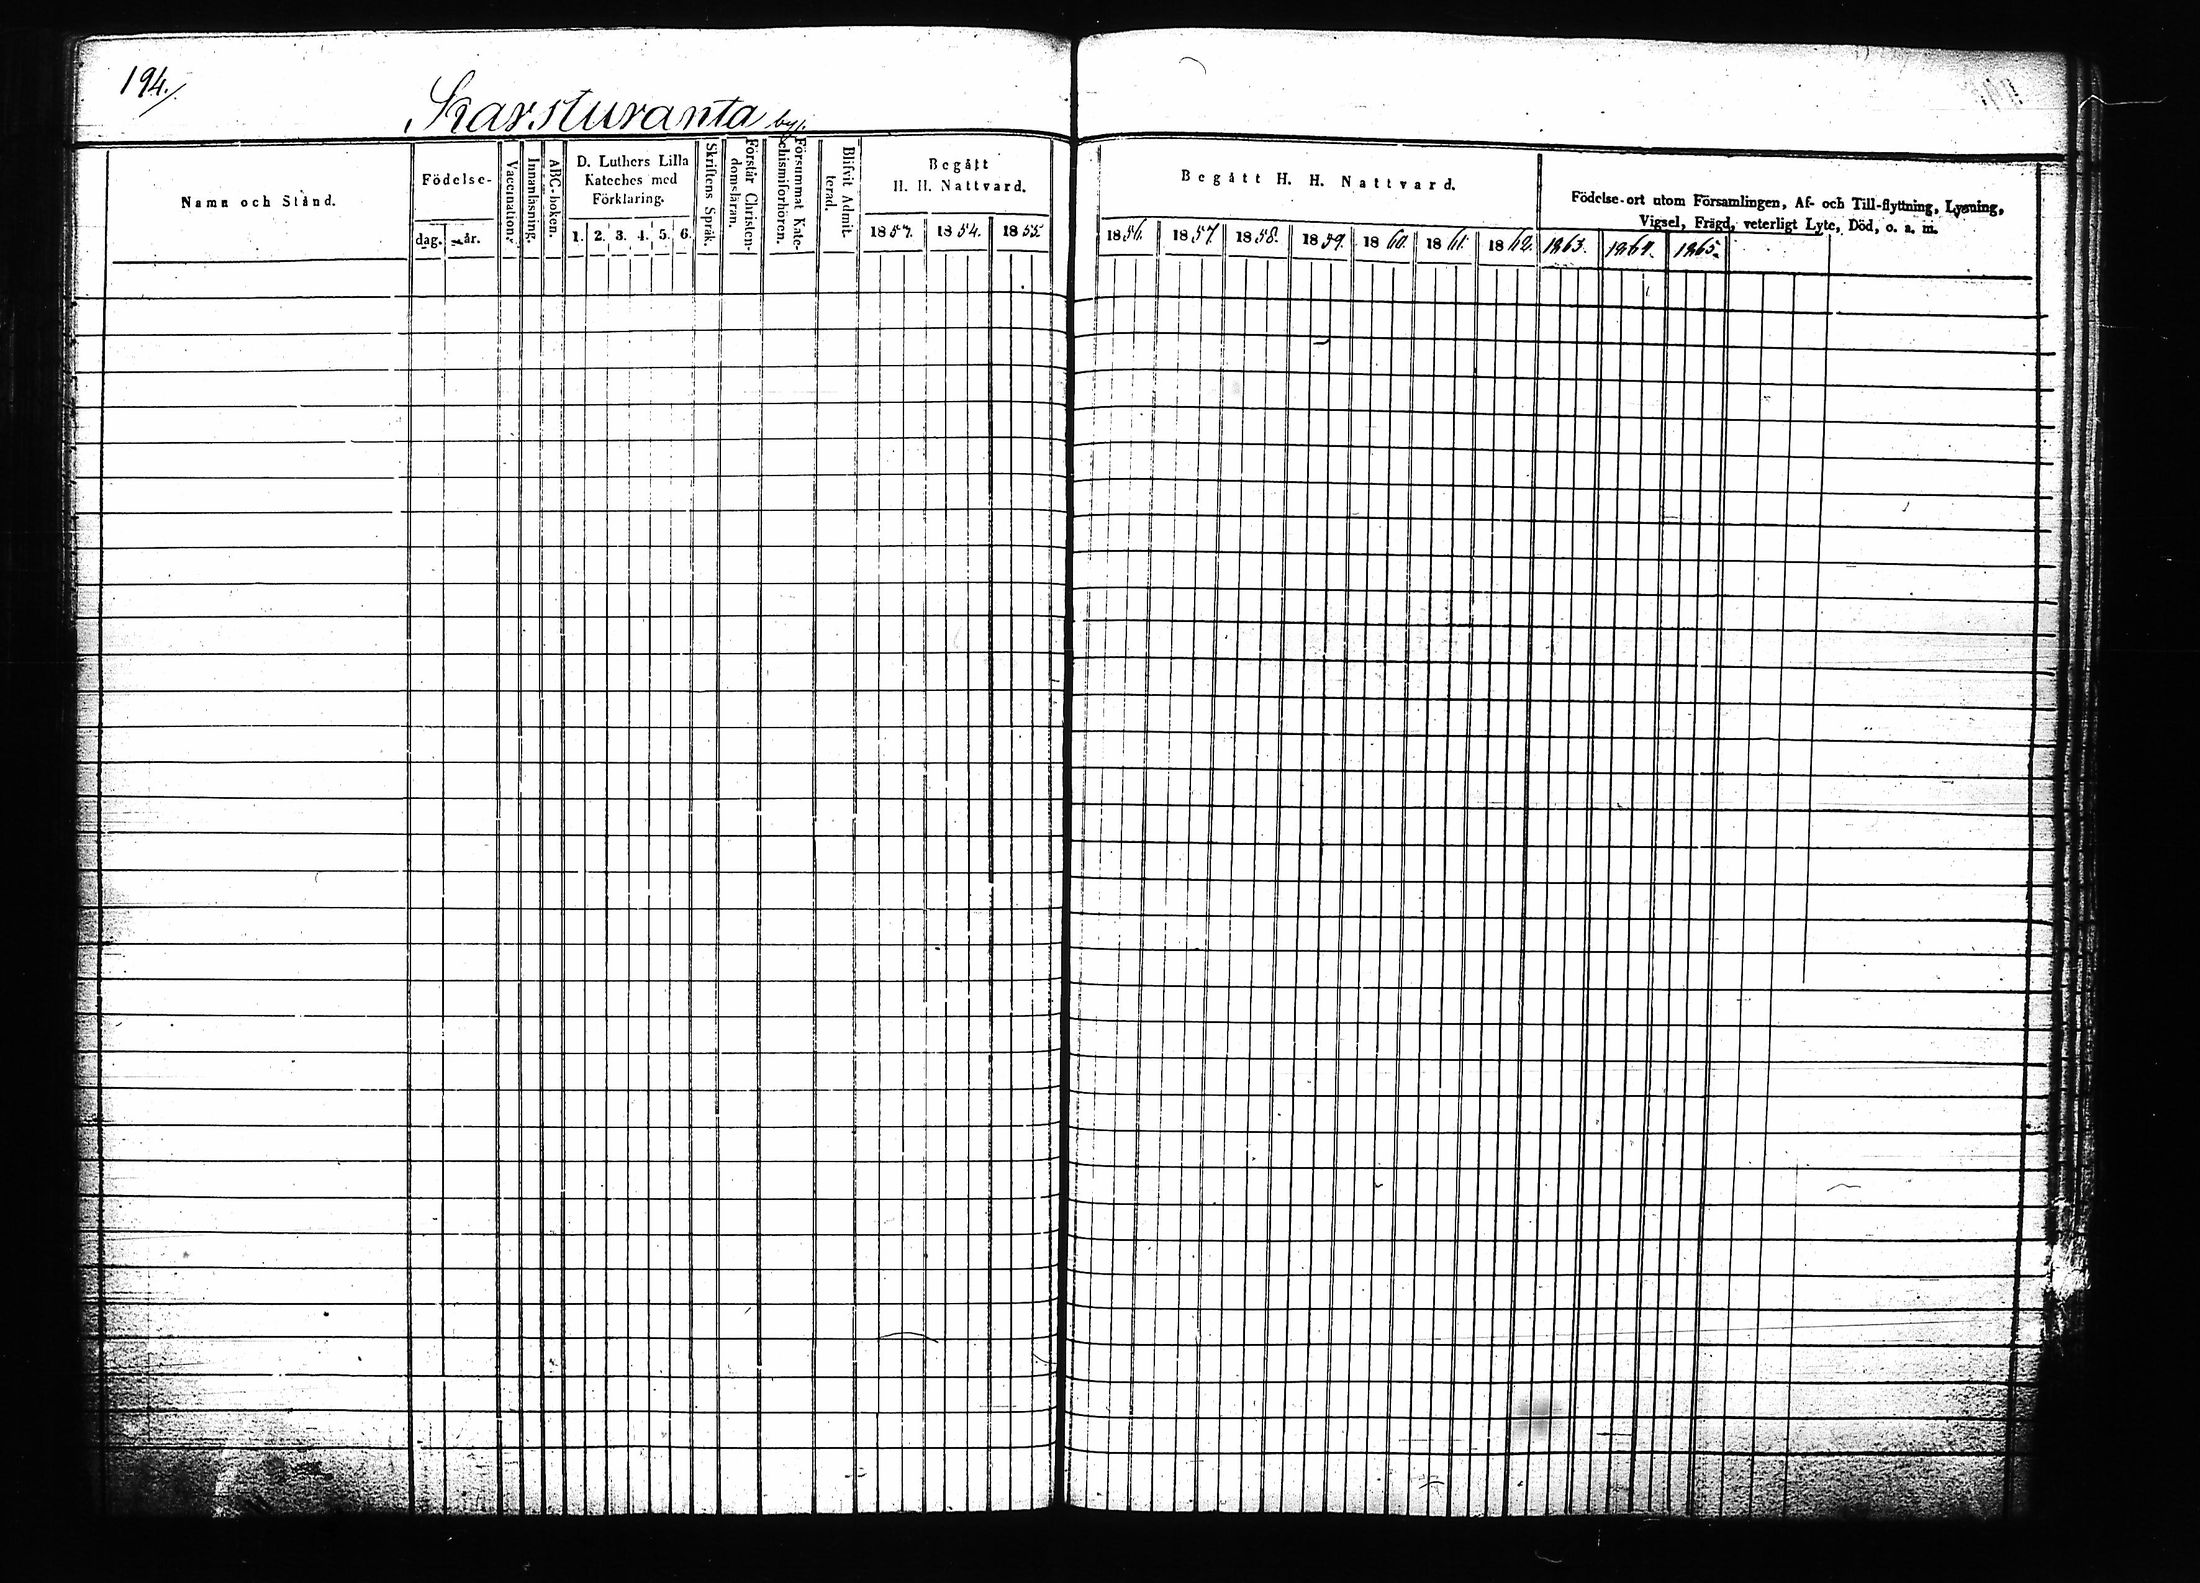 194.
Karsturanta by.
Namn och Stånd.
Födelse-
dag. år.
Vaccination.
Innanläsning.
ABC-boken.
D. Luthers Lilla
Kateches med
Förklaring.
1. 2. 3. 4. 5. 6.
Skriftens Språk.
Förstår Christen-
domsläran.
Försummat Kate-
chismiförhören.
Blifvit Admit-
terad.
Begått
H. H. Nattvard.
1853. 1854. 1855.
Begått H. H. Nattvard.
1856. 1857. 1858. 1859. 1860. 1861. 1862.
Födelse-ort utom Församlingen, Af- och Till-flyttning, Lysning,
Vigsel, Frägd, veterligt Lyte, Död, o. a. m.
1863. 1864. 1865.